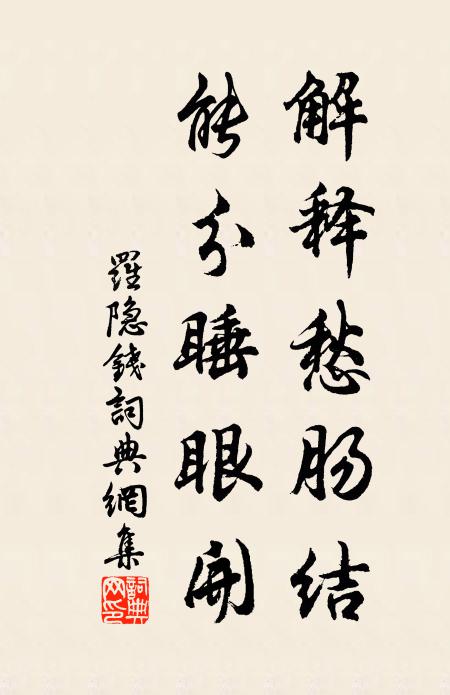 解释愁肠结
能分睡眼开
羅隐錢詞典網集
詞典网印